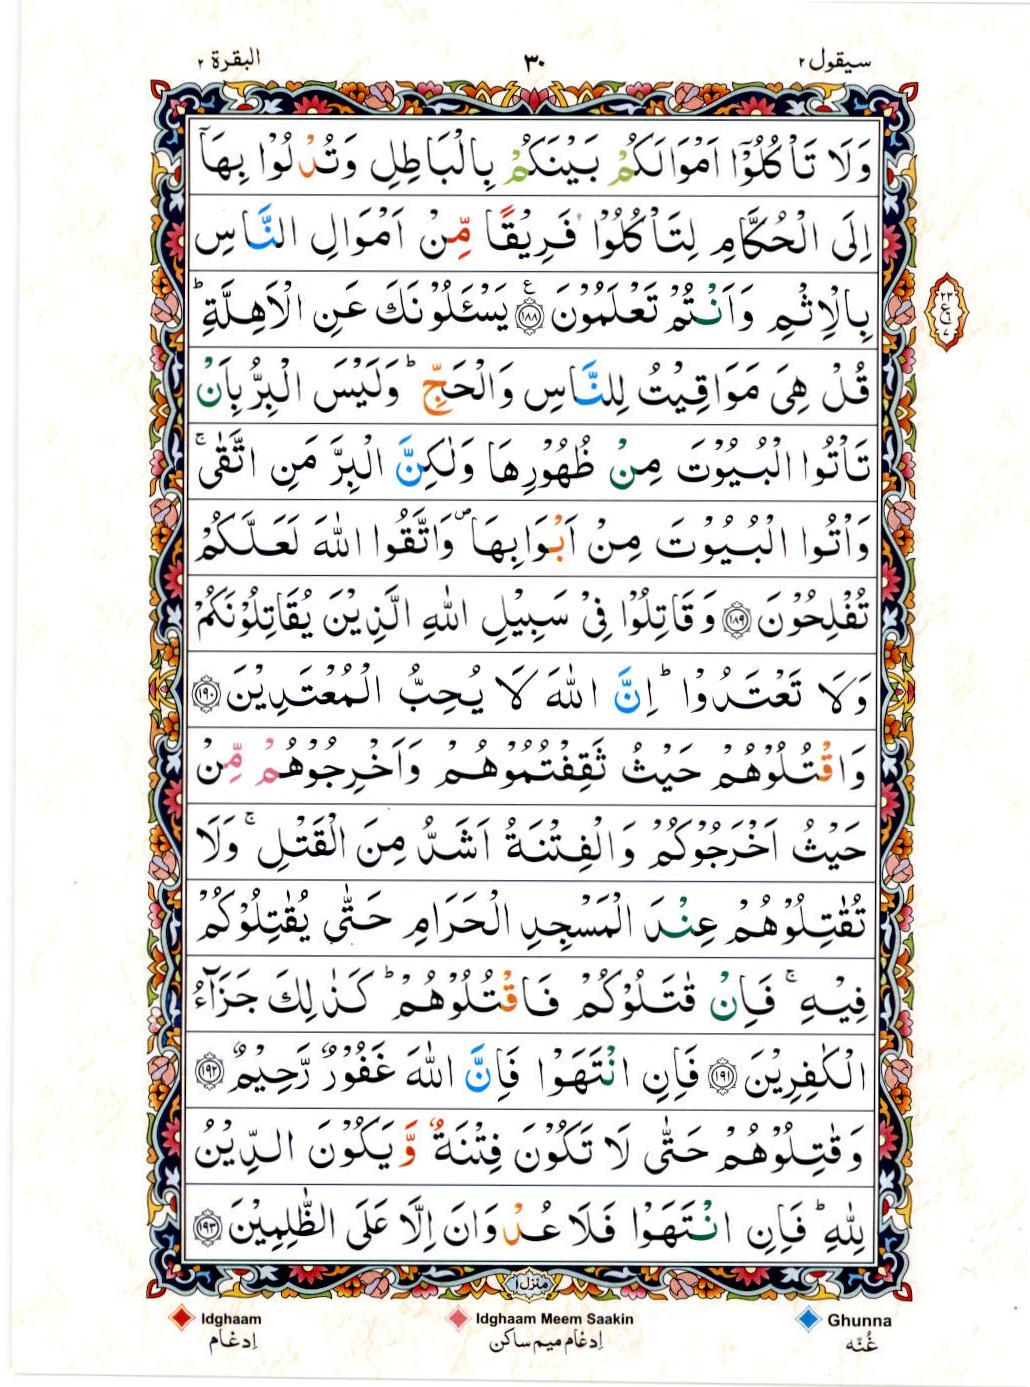 سيقول ٢
٣٠
البقرة ٢
وَلَا تَاْكُلُوْٓا اَمْوَالَكُمْ بَيْنَكُمْ بِالْبَاطِلِ وَتُدْلُوْا بِهَآ
اِلَى الْحُكَّامِ لِتَاْكُلُوْا فَرِيْقًا مِّنْ اَمْوَالِ النَّاسِ
بِالْاِثْمِ وَاَنْتُمْ تَعْلَمُوْنَ ۧ﴿١٨٨﴾ يَسْـَٔلُوْنَكَ عَنِ الْاَهِلَّةِ ؕ
قُلْ هِىَ مَوَاقِيْتُ لِلنَّاسِ وَالْحَجِّ ؕ وَلَيْسَ الْبِرُّ بِاَنْ
تَاْتُوا الْبُيُوْتَ مِنْ ظُهُوْرِهَا وَلٰكِنَّ الْبِرَّ مَنِ اتَّقٰى ۚ
وَاْتُوا الْبُيُوْتَ مِنْ اَبْوَابِهَا ۪ وَاتَّقُوا اللّٰهَ لَعَلَّكُمْ
تُفْلِحُوْنَ ﴿١٨٩﴾ وَقَاتِلُوْا فِىْ سَبِيْلِ اللّٰهِ الَّذِيْنَ يُقَاتِلُوْنَكُمْ
وَلَا تَعْتَدُوْا ؕ اِنَّ اللّٰهَ لَا يُحِبُّ الْمُعْتَدِيْنَ ﴿١٩٠﴾
وَاقْتُلُوْهُمْ حَيْثُ ثَقِفْتُمُوْهُمْ وَاَخْرِجُوْهُمْ مِّنْ
حَيْثُ اَخْرَجُوْكُمْ وَالْفِتْنَةُ اَشَدُّ مِنَ الْقَتْلِ ۚ وَلَا
تُقٰتِلُوْهُمْ عِنْدَ الْمَسْجِدِ الْحَرَامِ حَتّٰى يُقٰتِلُوْكُمْ
فِيْهِ ۚ فَاِنْ قٰتَلُوْكُمْ فَاقْتُلُوْهُمْ ؕ كَذٰلِكَ جَزَآءُ
الْكٰفِرِيْنَ ﴿١٩١﴾ فَاِنِ انْتَهَوْا فَاِنَّ اللّٰهَ غَفُوْرٌ رَّحِيْمٌ ﴿١٩٢﴾
وَقٰتِلُوْهُمْ حَتّٰى لَا تَكُوْنَ فِتْنَةٌ وَّيَكُوْنَ الدِّيْنُ
لِلّٰهِ ؕ فَاِنِ انْتَهَوْا فَلَا عُدْوَانَ اِلَّا عَلَى الظّٰلِمِيْنَ ﴿١٩٣﴾
٢٣
ع
٧
منزل ١
Idghaam
Idghaam Meem Saakin
Ghunna
اِدغام
اِدغام ميم ساكن
غُنّه